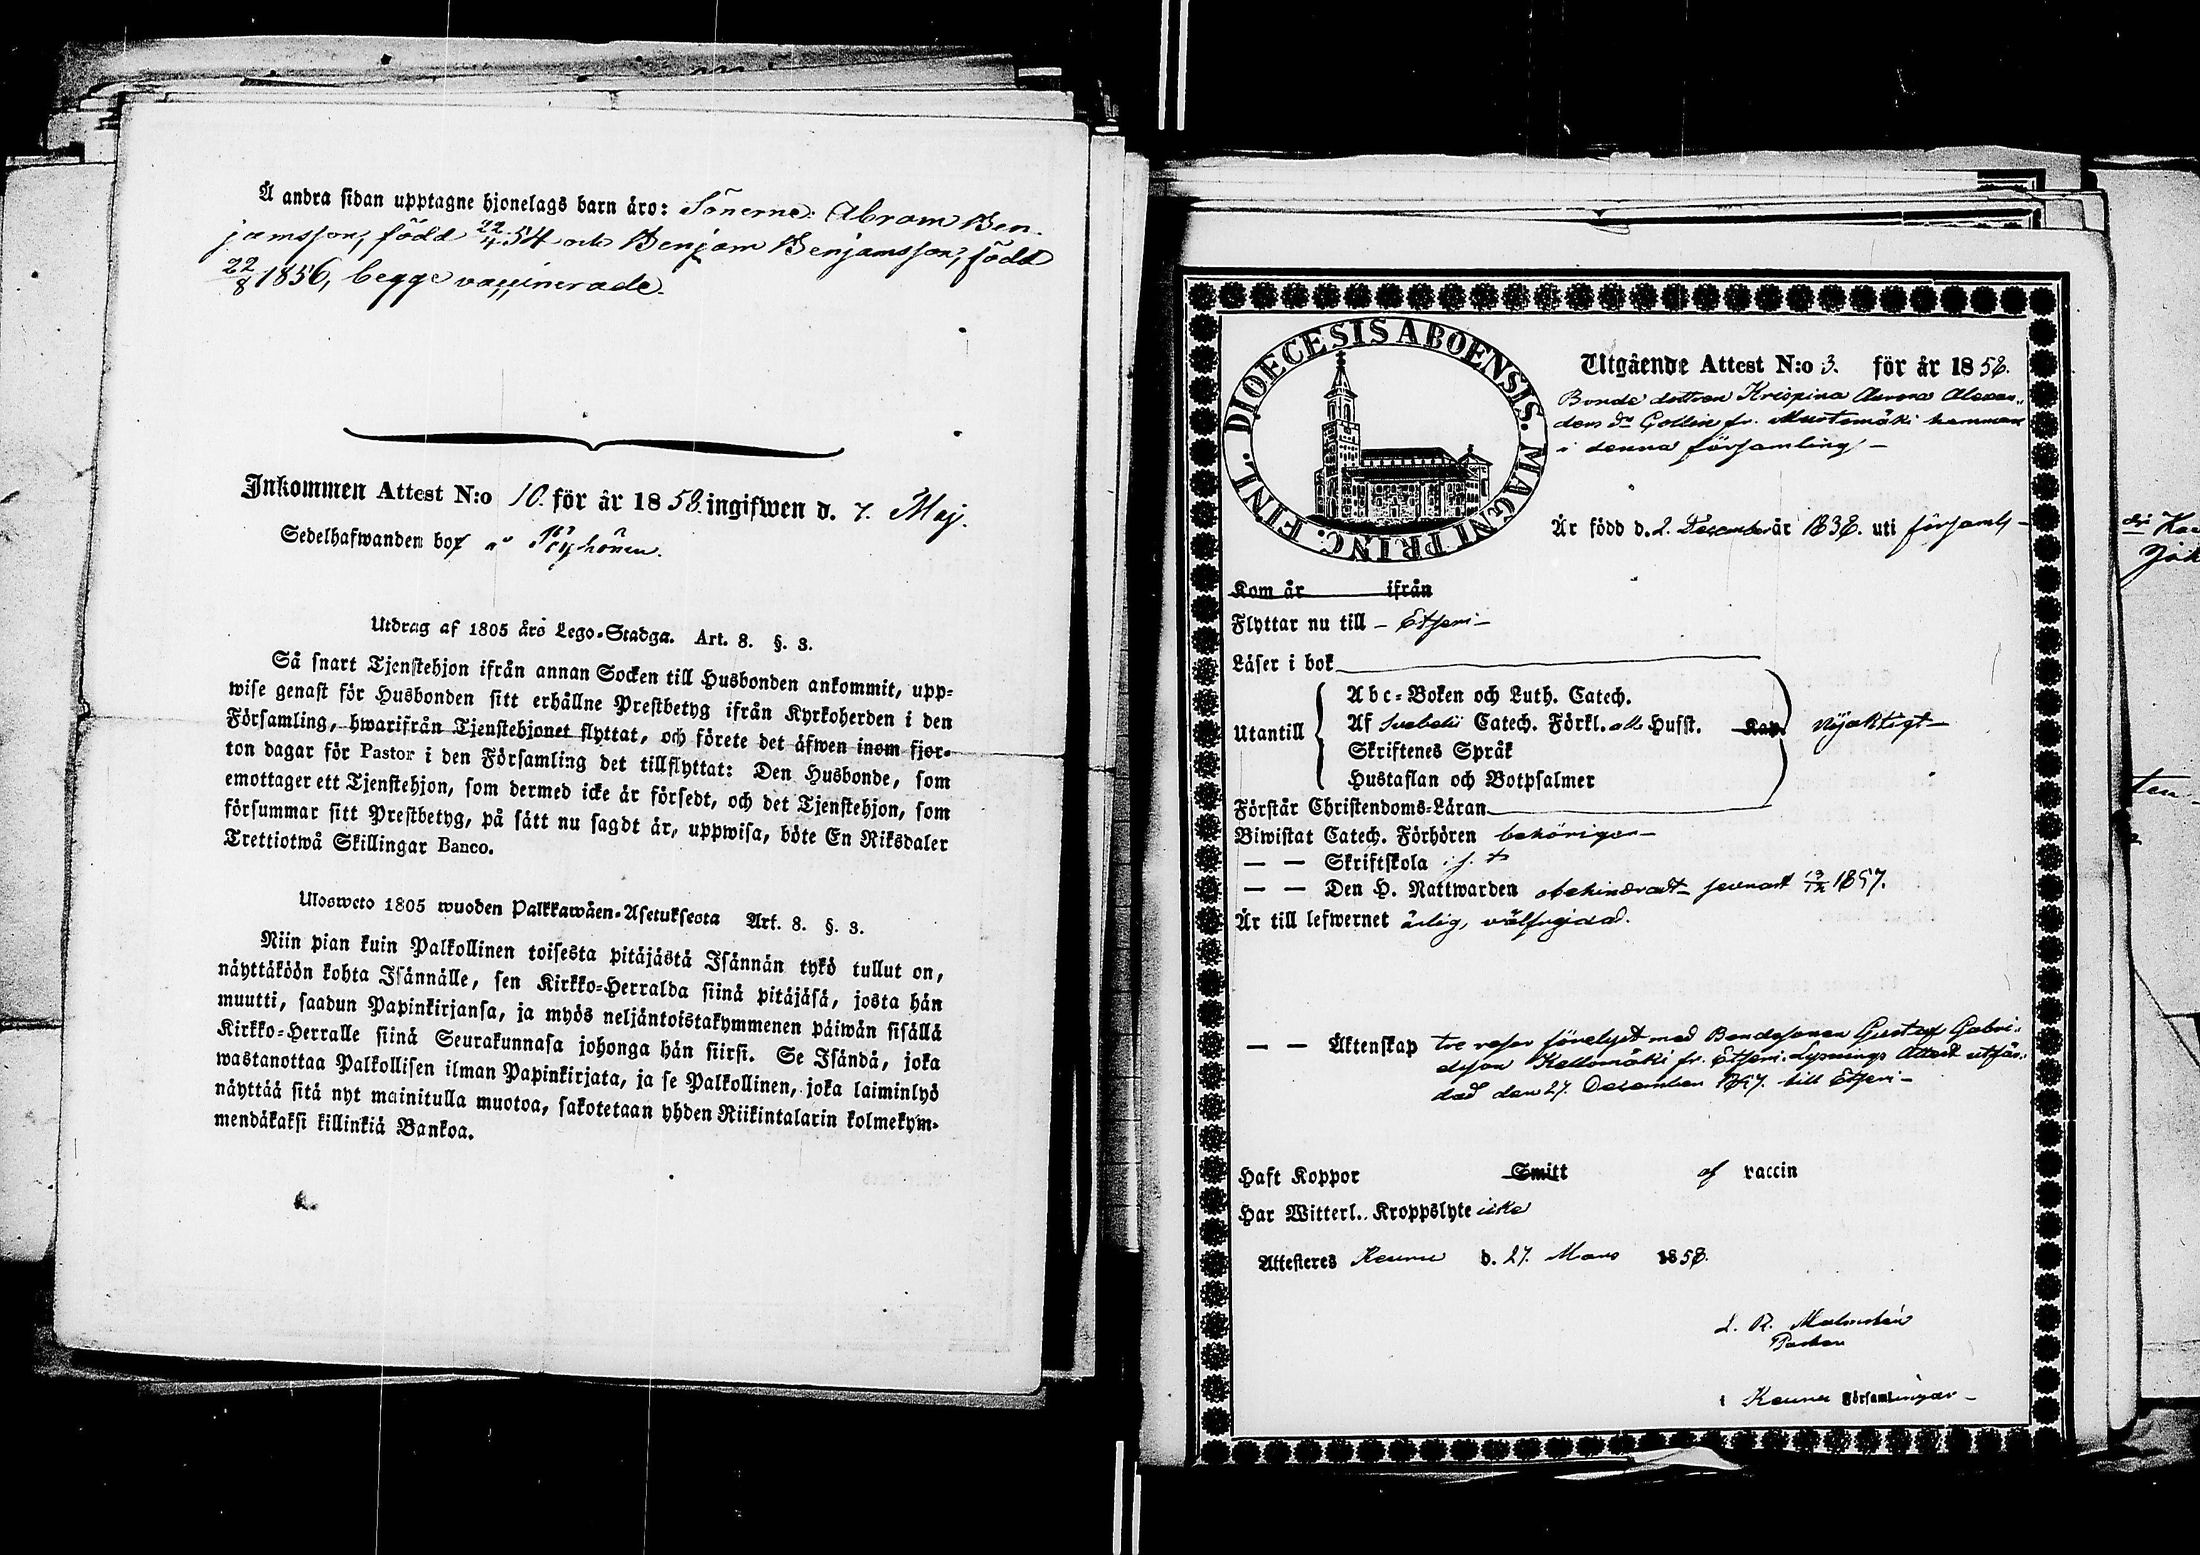 Å andra sidan upptagne hjonelags barn äro: Sönerne: Abram Ben-
jamsson, född 22/4 54 och Benjam Benjamsson, född
22/8 1856, begge vaccinerade.
Inkommen Attest N:o 10. för år 1858. ingifwen d. 7. Maj.
Sedelhafwanden bor å Pöyhönen.
Utdrag af 1805 års Lego-Stadga. Art. 8. §. 3.
Så snart Tjenstehjon ifrån annan Socken till Husbonden ankommit, upp-
wise genast för Husbonden sitt erhållne Prestbetyg ifrån Kyrkoherden i den
Församling, hwarifrån Tjenstehjonet flyttat, och förete det äfwen inom fjor-
ton dagar för Pastor i den Församling det tillflyttat: Den Husbonde, som
emottager ett Tjenstehjon, som dermed icke är försedt, och det Tjenstehjon, som
försummar sitt Prestbetyg, på sätt nu sagdt är, uppwisa, böte En Riksdaler
Trettiotwå Skillingar Banco.
Ulosweto 1805 wuoden Palkkawäen-Asetuksesta Art. 8. §. 3.
Niin pian kuin Palkollinen toisesta pitäjästä Isännän tykö tullut on,
näyttäköön kohta Isännälle, sen Kirkko-Herralda siinä pitäjäsä, josta hän
muutti, saadun Papinkirjansa, ja myös neljäntoistakymmenen päiwän sisällä
Kirkko-Herralle siinä Seurakunnasa johonga hän siirsi. Se Isändä, joka
wastanottaa Palkollisen ilman Papinkirjata, ja se Palkollinen, joka laiminlyö
näyttää sitä nyt mainitulla muotoa, sakotetaan yhden Riikintalarin kolmekym-
mendäkaksi killinkiä Bankoa.
DIOECESIS ABOENSIS. MAGNI PRINC. FINL.
Utgående Attest N:o 3. för år 1858.
Bonde dottren Krispina Aurora Alexan-
ders dr Gollin fr. Mustemäki hemman
i denna församling -
Är född d. 2. December år 1838. uti församl -
Kom år ifrån
Flyttar nu till - Etseri -
Läser i bok
Abc-Boken och Luth. Catech.
Utantill Af Svebelii Catech. Förkl. alla Hufst. Kap. Nöjaktigt -
Skriftenes Språk
Hustaflan och Botpsalmer
Förstår Christendoms-Läran
Biwistat Catech. Förhören behörigen -
— — Skriftskola
— — Den H. Nattwarden obehindradt senast 13/12 1857.
Är till lefwernet ärlig, välfrejdad.
— — Äktenskap tre resor förelyst med Bondesonen Gustaf Gabri-
elsson Kellomäki fr. Etseri. Lysnings Attest utfär-
dad den 27. December 1857. till Etseri -
Haft Koppor Smitt af vaccin
Har Witterl. Kroppslyte icke
Attesteres Keuru d. 27. Mars 1858.
L. R. Malmstén
Pastor
i Keuru Församlingar -